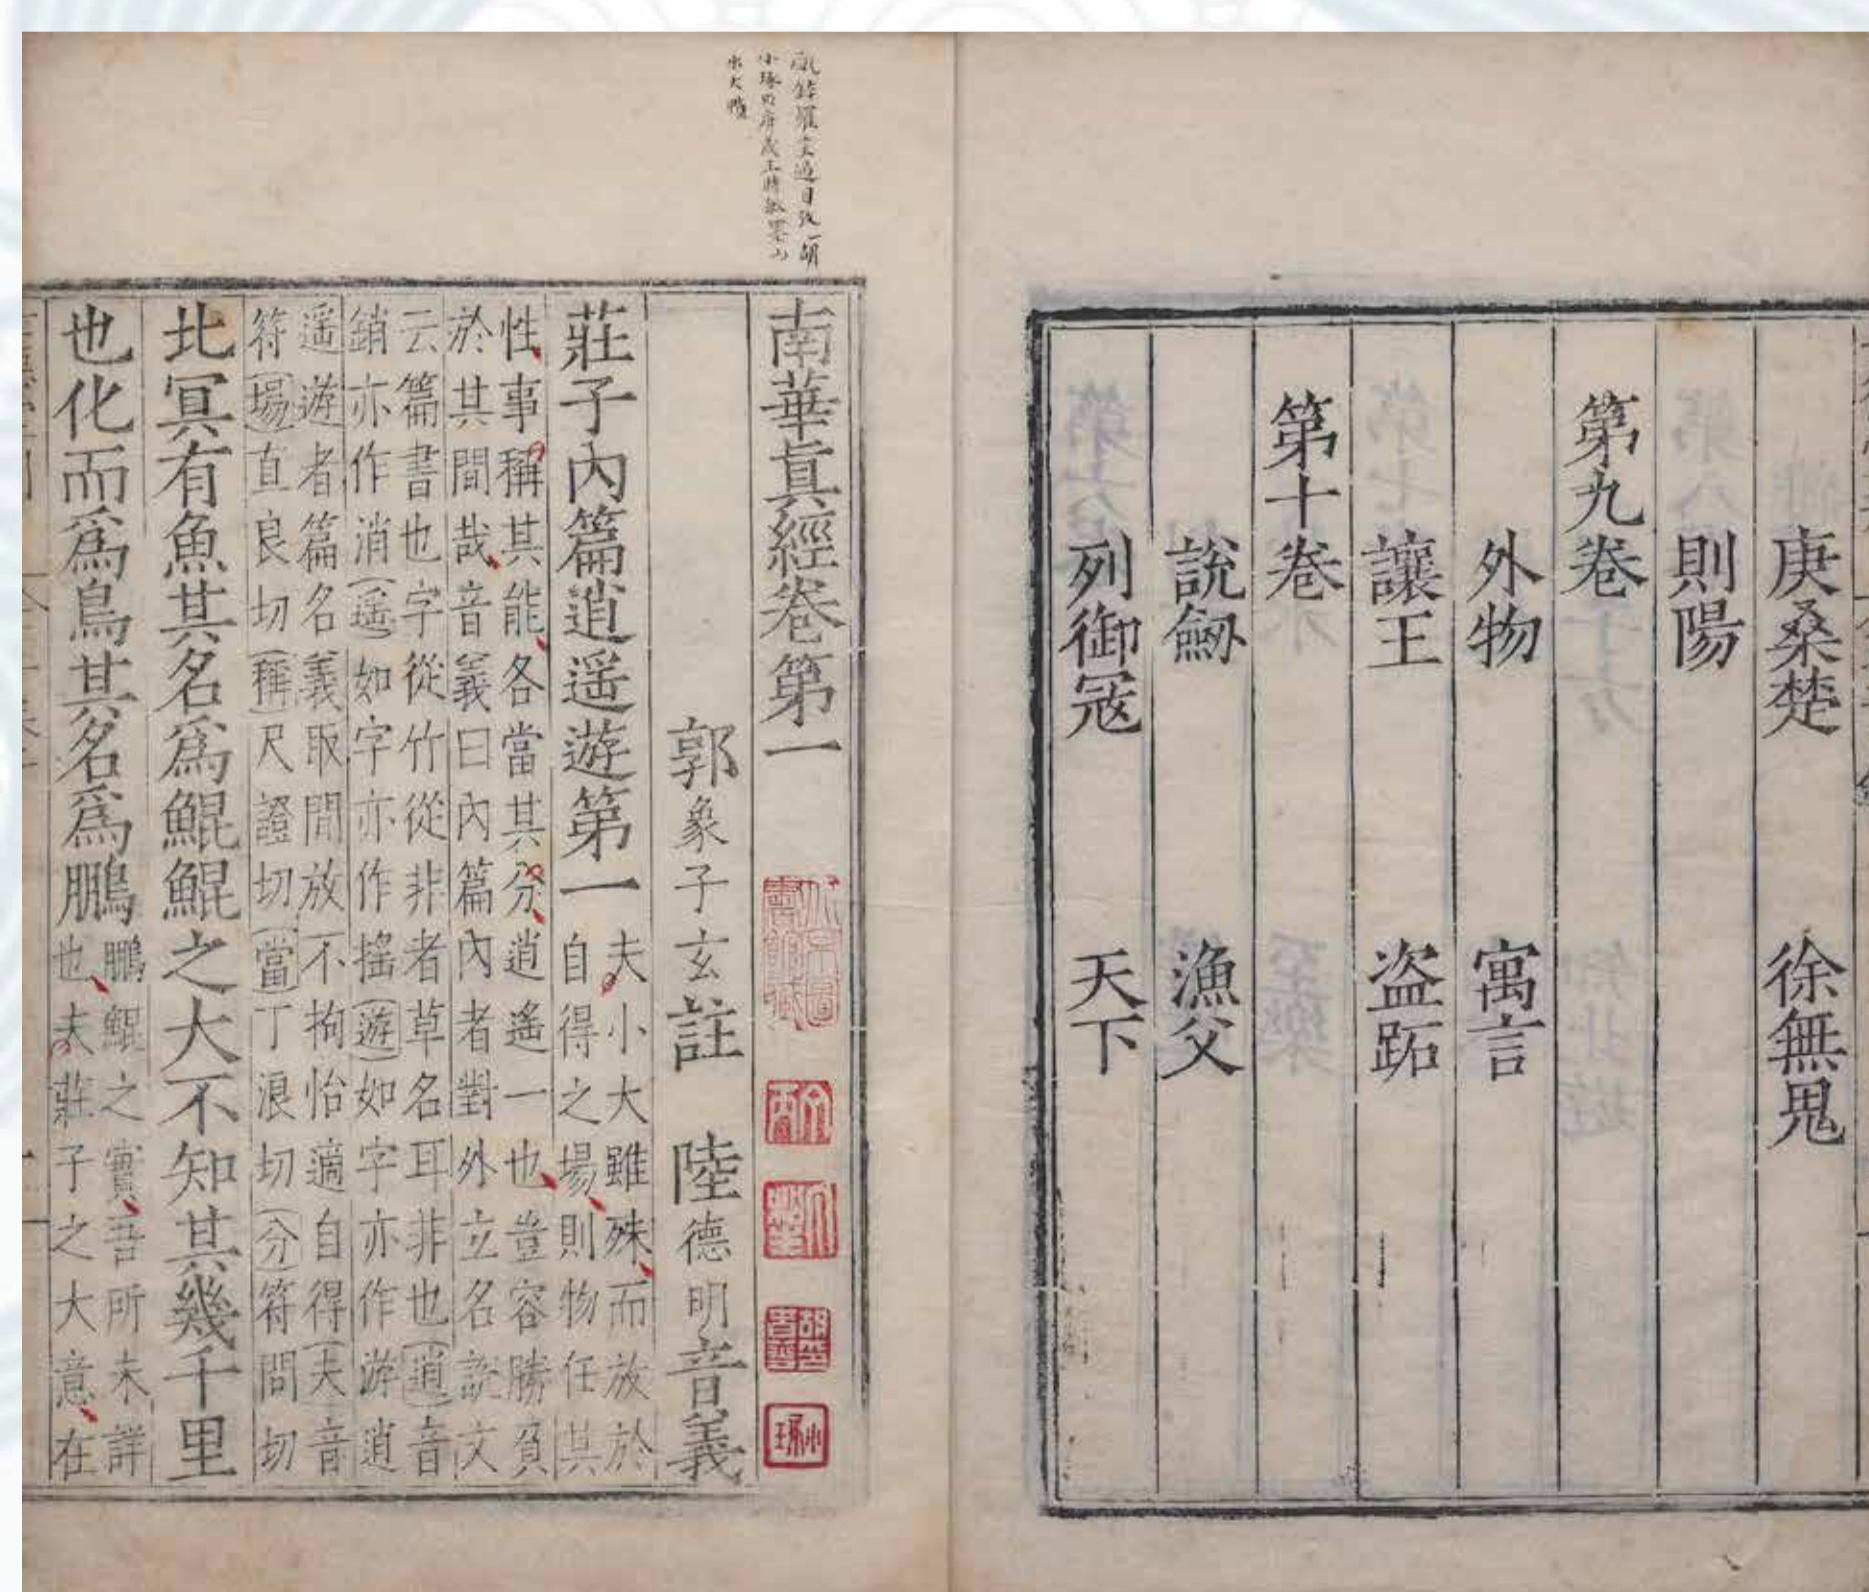 庚桑楚 徐無鬼
則陽
第九卷
外物 寓言
讓王 盗跖
第十卷
說劒 漁父
列御冦 天下
南華眞經卷第一
郭象子玄註 陸德明音義
莊子内篇逍遥遊第一 夫小大雖殊而放於
自得之場則物任其
性事稱其能各當其分逍遥一也豈容勝負
於其間哉音義曰内篇内者對外立名説文
云篇書也字從竹從非者草名耳非也逍音
銷亦作消遥如字亦作揺遊如字亦作游逍
遥遊者篇名義取閒放不拘怡適自得夫音
符場直良切稱尺證切當丁浪切分符問切
北冥有魚其名爲鯤鯤之大不知其幾千里
也化而爲鳥其名爲鵬 鵬鯤之實吾所未詳
也夫莊子之大意在